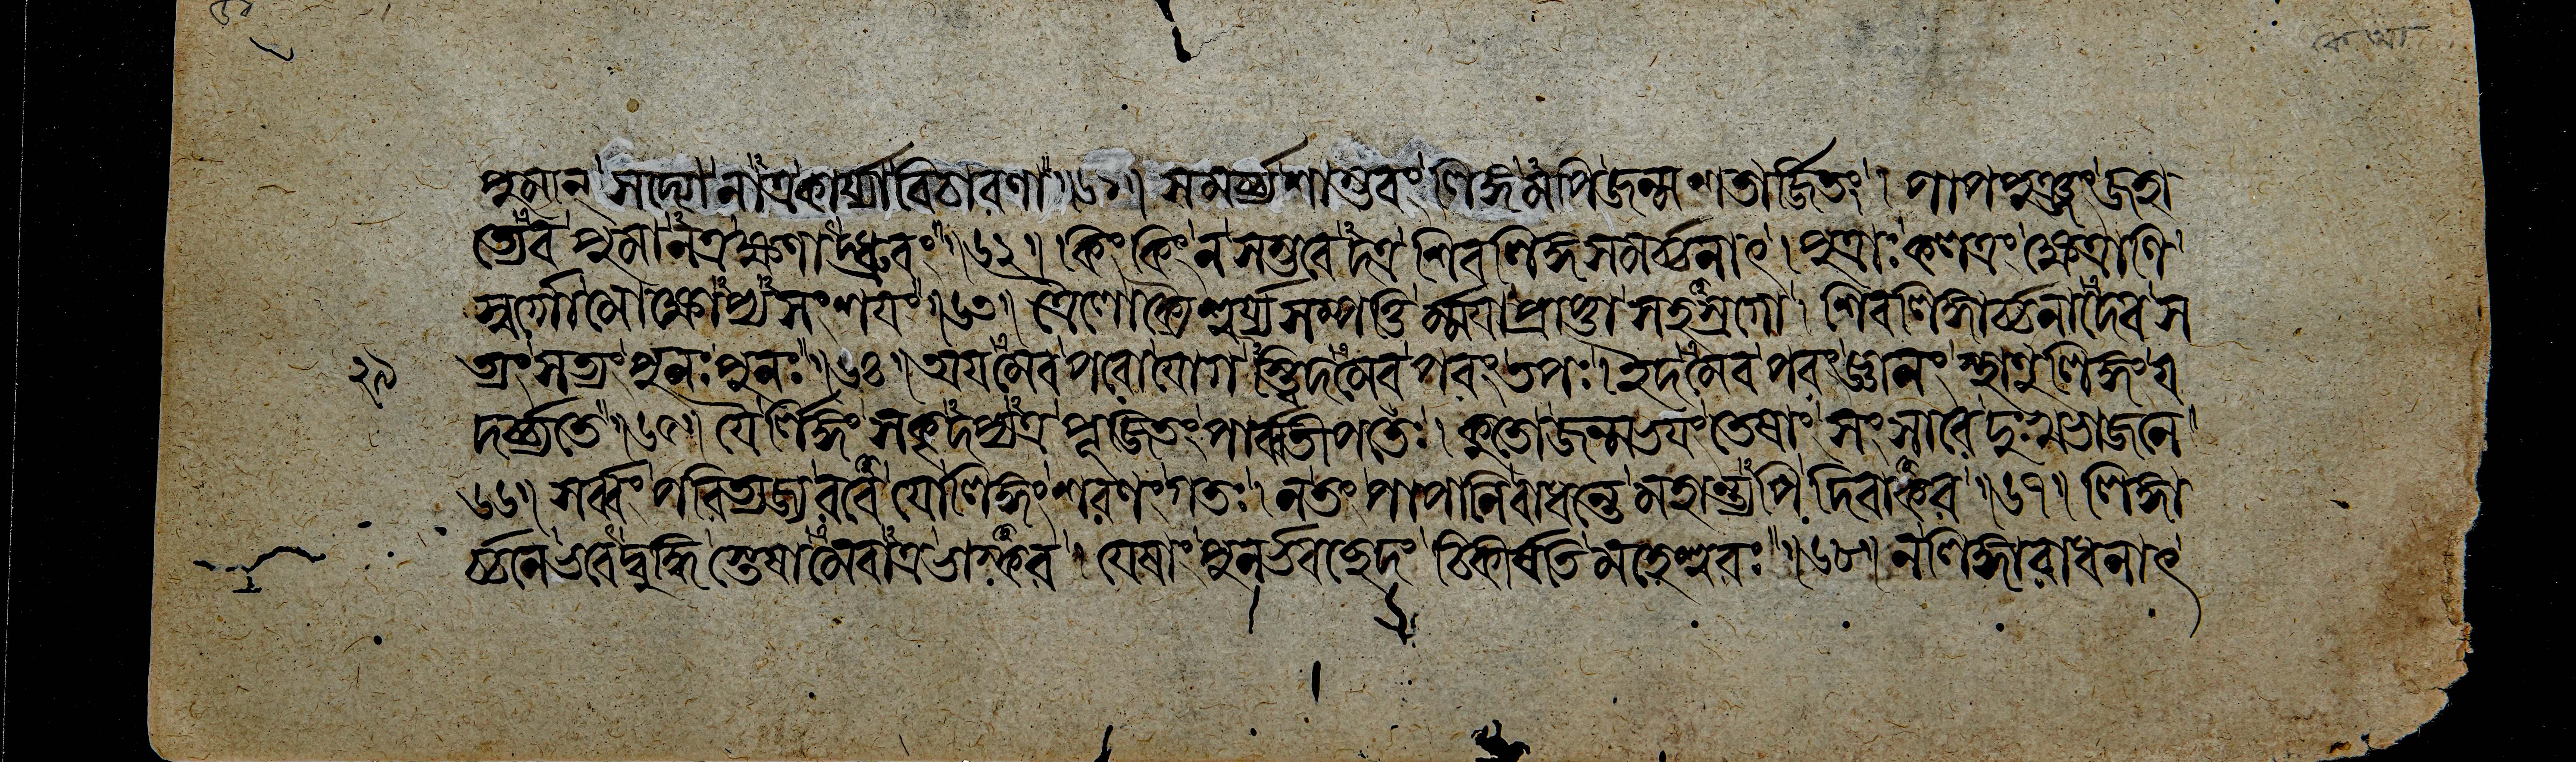 পুমান্ সদ্যোনাত্রকার্য্যাবিচারণা॥৬১॥ সমর্চ্চ্যশাম্ভবং লিঙ্গমপিজন্মশতার্জ্জিতং। পাপপুঞ্জংজহা
ত্যেব পুমানত্রক্ষণাদ্ধ্রুবং॥৬২॥ কিং কিং ন সম্ভবেদত্র শিবলিঙ্গসমর্চ্চনাৎ। পুত্রাঃ কলত্রং ক্ষেত্রাণি
স্বর্গোমোক্ষোপ্যসংশয়ং॥৬৩॥ ত্রৈলোক্যৈশ্বর্য্যসম্পত্তির্ম্ময়াপ্রাপ্তা সহস্রগো। শিবলিঙ্গার্চ্চনাদেব স
ত্যং সত্যং পুনঃ পুনঃ॥৬৪॥ অয়মেব পরোযোগ স্ত্বিদমেব পরং তপঃ। ইদমেব পরং জ্ঞানং স্থাণুলিঙ্গং য
দর্চ্চ্যতে॥৬৫॥ যৈর্লিঙ্গং সকৃদপ্যত্র পূজিতং পার্ব্বতীপতেঃ। কুতোজন্মভয়ং তেষাং সংসারে দুঃখভাজনে
॥৬৬॥ সর্ব্বং পরিত্যজ্য রবে যোলিঙ্গং শরণং গতঃ। ন তং পাপানি বাধন্তে মহান্ত্যপি দিবাকর॥৬৭॥ লিঙ্গা
র্চ্চনেভবেদ্বুদ্ধিস্তেষামেবাত্রভাস্কর। যেষাং পুনর্ভবচ্ছেদং চিকীর্ষতি মহেশ্বরঃ॥৬৮॥ ন লিঙ্গারাধনাৎ
২৯